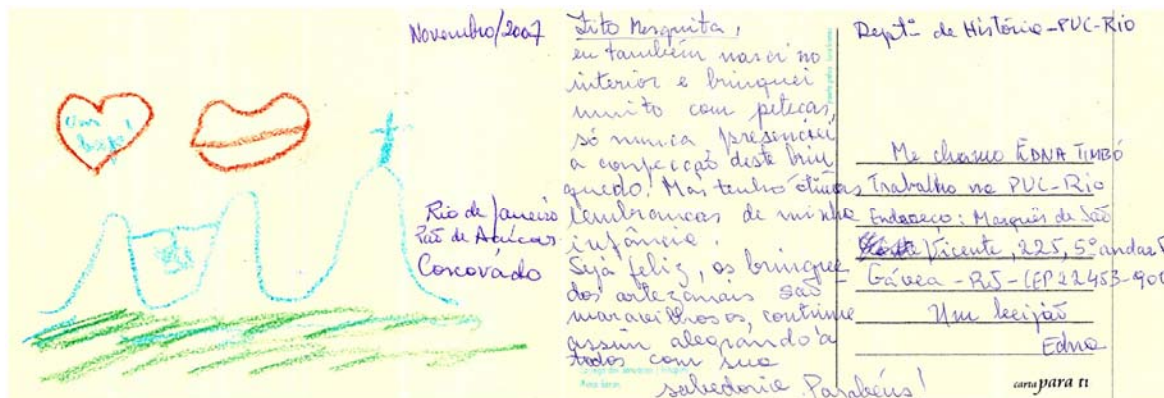 Novembro/2007
Um
beijo!
Rio de Janeiro
Pão de Açúcar
Corcovado
Tito Mesquita,
eu também nasci no
interior e brinquei
muito com petecas,
só nunca presenciei
a confecção deste brin
quedo. Mas tenho ótimas
lembranças de minha
infância.
Seja feliz, os brinque
dos artezanais são
maravilhosos, continue
assim alegrando à
todos com sua
sabedoria. Parabéns!
Deptº de História-PUC-RIO
Me chamo EDNA TIMBÓ
Trabalho na PUC-Rio
Endereço: Marquês de São
Vicente, 225, 5º andar
Gávea - RJ - CEP 22453-900
Um beijão
Edna
carta para ti